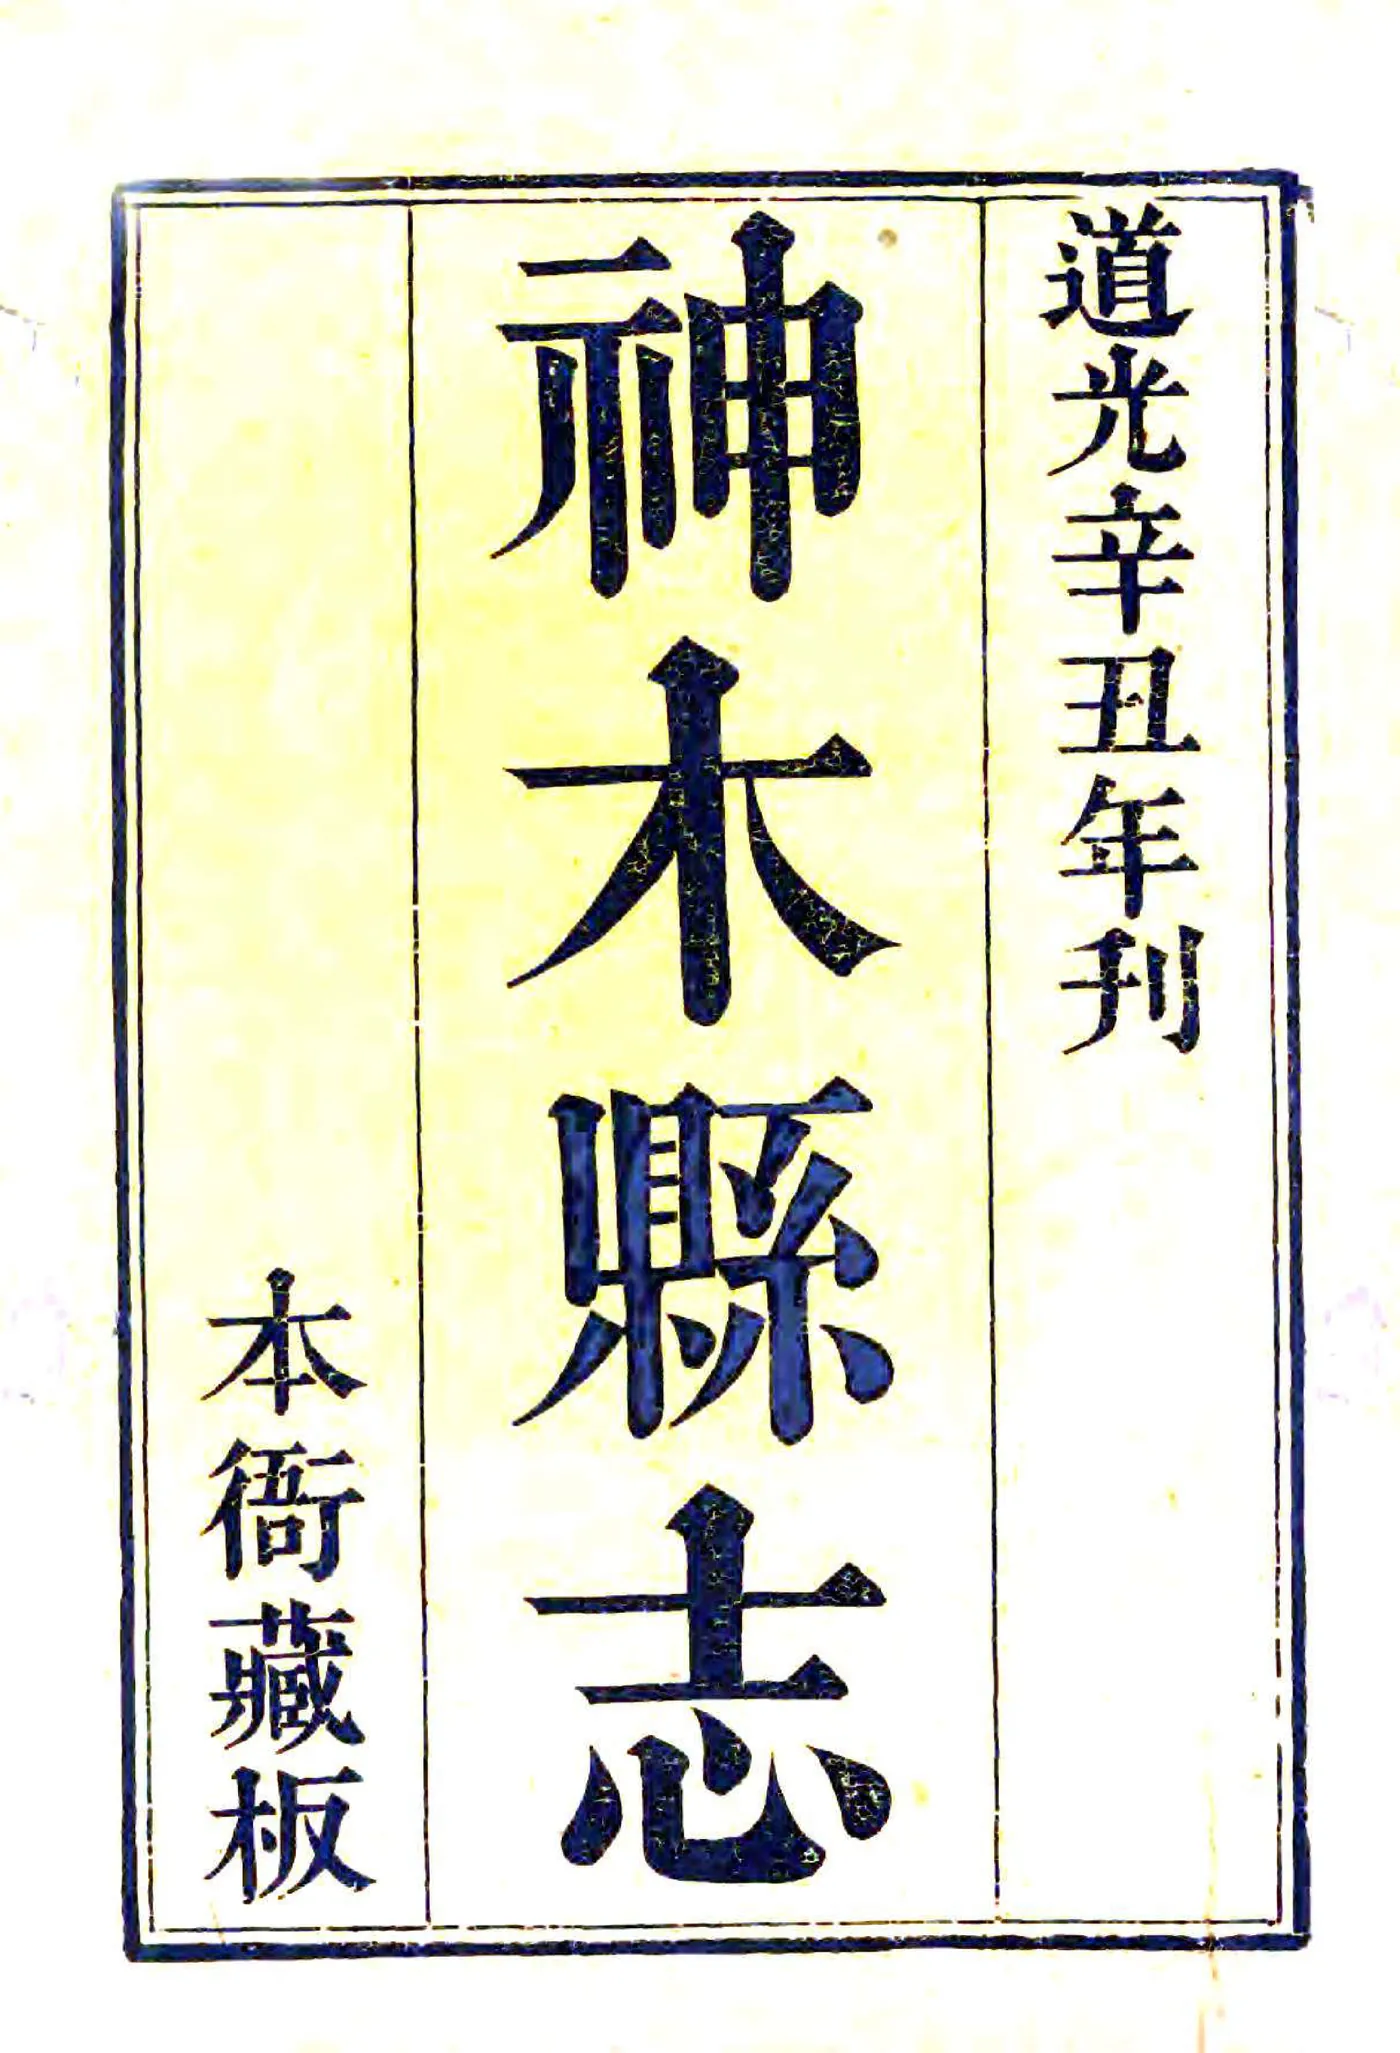 道光辛丑年刋
神木縣志
本衙藏板